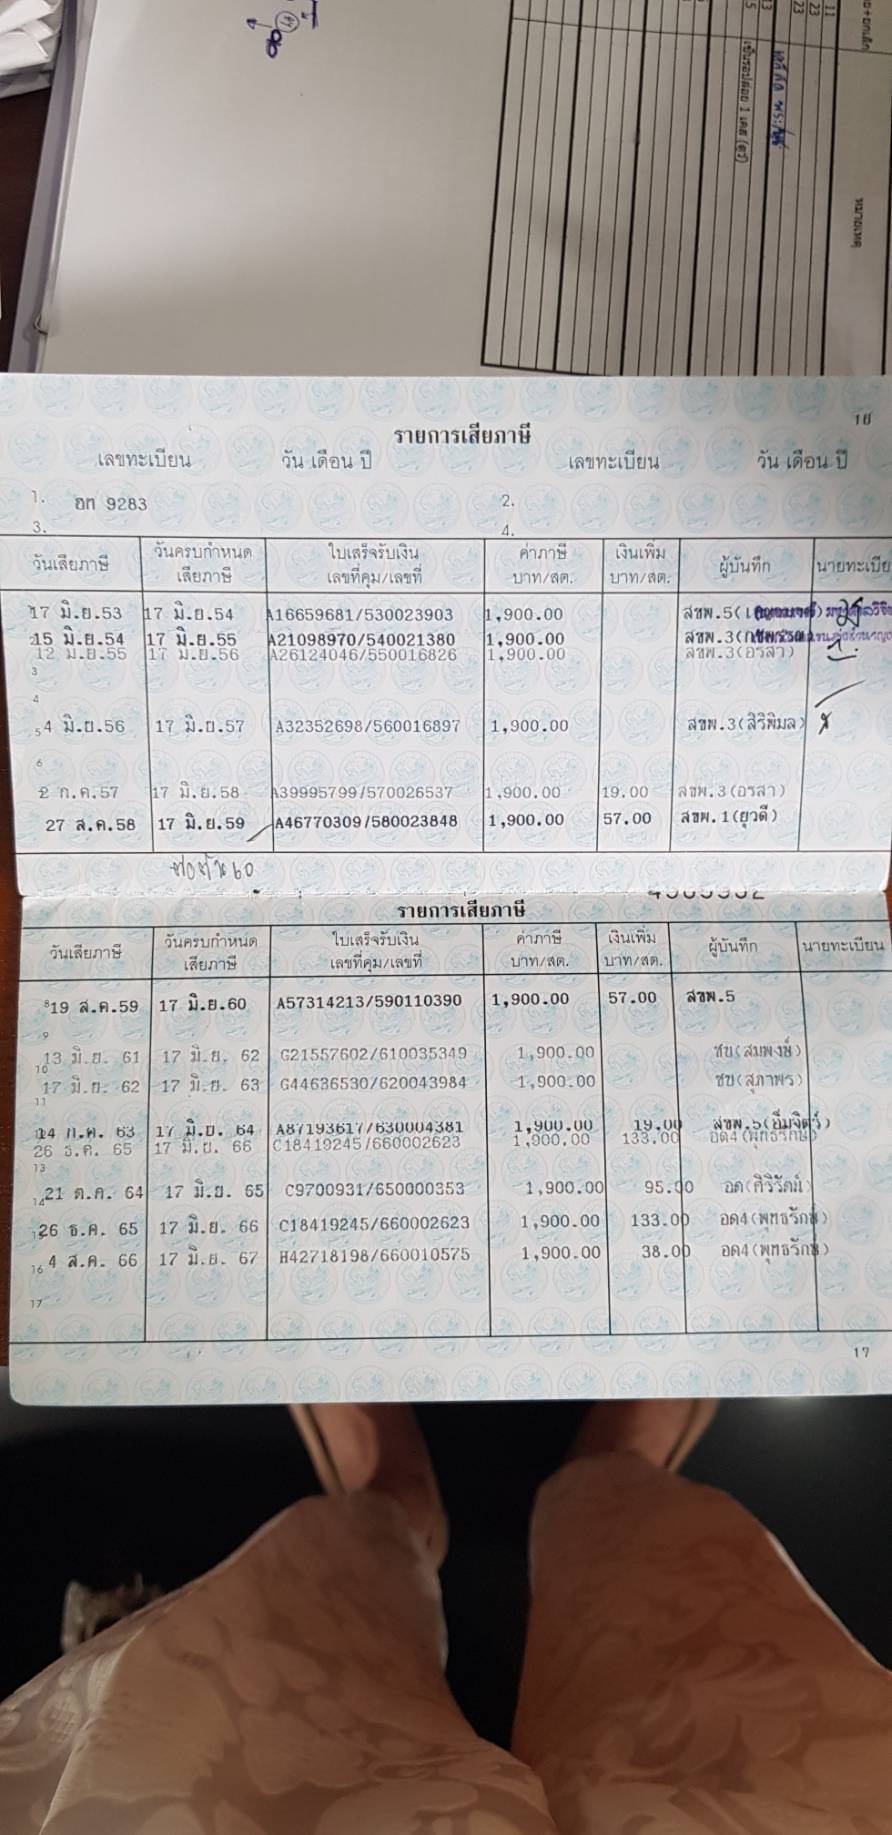 หมายเหตุ
เข็นรอปล่อย 1 เคส (ตรี)
11
23
23
13
5
18
รายการเสียภาษี
เลขทะเบียน วัน เดือน ปี เลขทะเบียน วัน เดือน ปี
1. ฮท 9283 2.
3. 4.
วันเสียภาษี วันครบกำหนดเสียภาษี ใบเสร็จรับเงิน เลขที่คุม/เลขที่ ค่าภาษี บาท/สต. เงินเพิ่ม บาท/สต. ผู้บันทึก นายทะเบีย
17 มิ.ย.53 17 มิ.ย.54 A16659681/530023903 1,900.00 สขพ.5(
15 มิ.ย.54 17 มิ.ย.55 A21098970/540021380 1,900.00 สขพ.3(
12 มิ.ย.55 17 มิ.ย.56 A26124046/550016826 1,900.00 สขพ.3(อรสา)
3
4
5 4 มิ.ย.56 17 มิ.ย.57 A32352698/560016897 1,900.00 สขพ.3(สิริพิมล)
6
2 ก.ค.57 17 มิ.ย.58 A39995799/570026537 1,900.00 19.00 สขพ.3(อรสา)
27 ส.ค.58 17 มิ.ย.59 A46770309/580023848 1,900.00 57.00 สขพ.1(ยุวดี)
รายการเสียภาษี
วันเสียภาษี วันครบกำหนดเสียภาษี ใบเสร็จรับเงิน เลขที่คุม/เลขที่ ค่าภาษี บาท/สต. เงินเพิ่ม บาท/สต. ผู้บันทึก นายทะเบียน
8 19 ส.ค.59 17 มิ.ย.60 A57314213/590110390 1,900.00 57.00 สขพ.5
9
13 มิ.ย. 61 17 มิ.ย. 62 G21557602/610035349 1,900.00 ชบ(สมพงษ์)
10
17 มิ.ย. 62 17 มิ.ย. 63 G44636530/620043984 1,900.00 ชบ(สุภาพร)
11
14 ก.ค. 63 17 มิ.ย. 64 A87193617/630004381 1,900.00 19.00 สขพ.5(อิ่มจิตร์)
26 ธ.ค. 65 17 มิ.ย. 66 C18419245/660002623 1,900.00 133.00 อด4(พุทธรักษ์)
13
14 21 ต.ค. 64 17 มิ.ย. 65 C9700931/650000353 1,900.00 95.00 อด(ศิริรัตน์)
26 ธ.ค. 65 17 มิ.ย. 66 C18419245/660002623 1,900.00 133.00 อด4(พุทธรักษ์)
16 4 ส.ค. 66 17 มิ.ย. 67 H42718198/660010575 1,900.00 38.00 อด4(พุทธรักษ์)
17
17